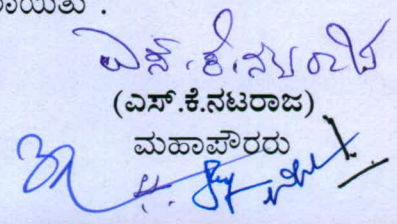 ಾಯಿತು .
ಎಸ್.ಕೆ.ನಟರಾಜ
(ಎಸ್.ಕೆ.ನಟರಾಜ)
ಮಹಾಪೌರರು